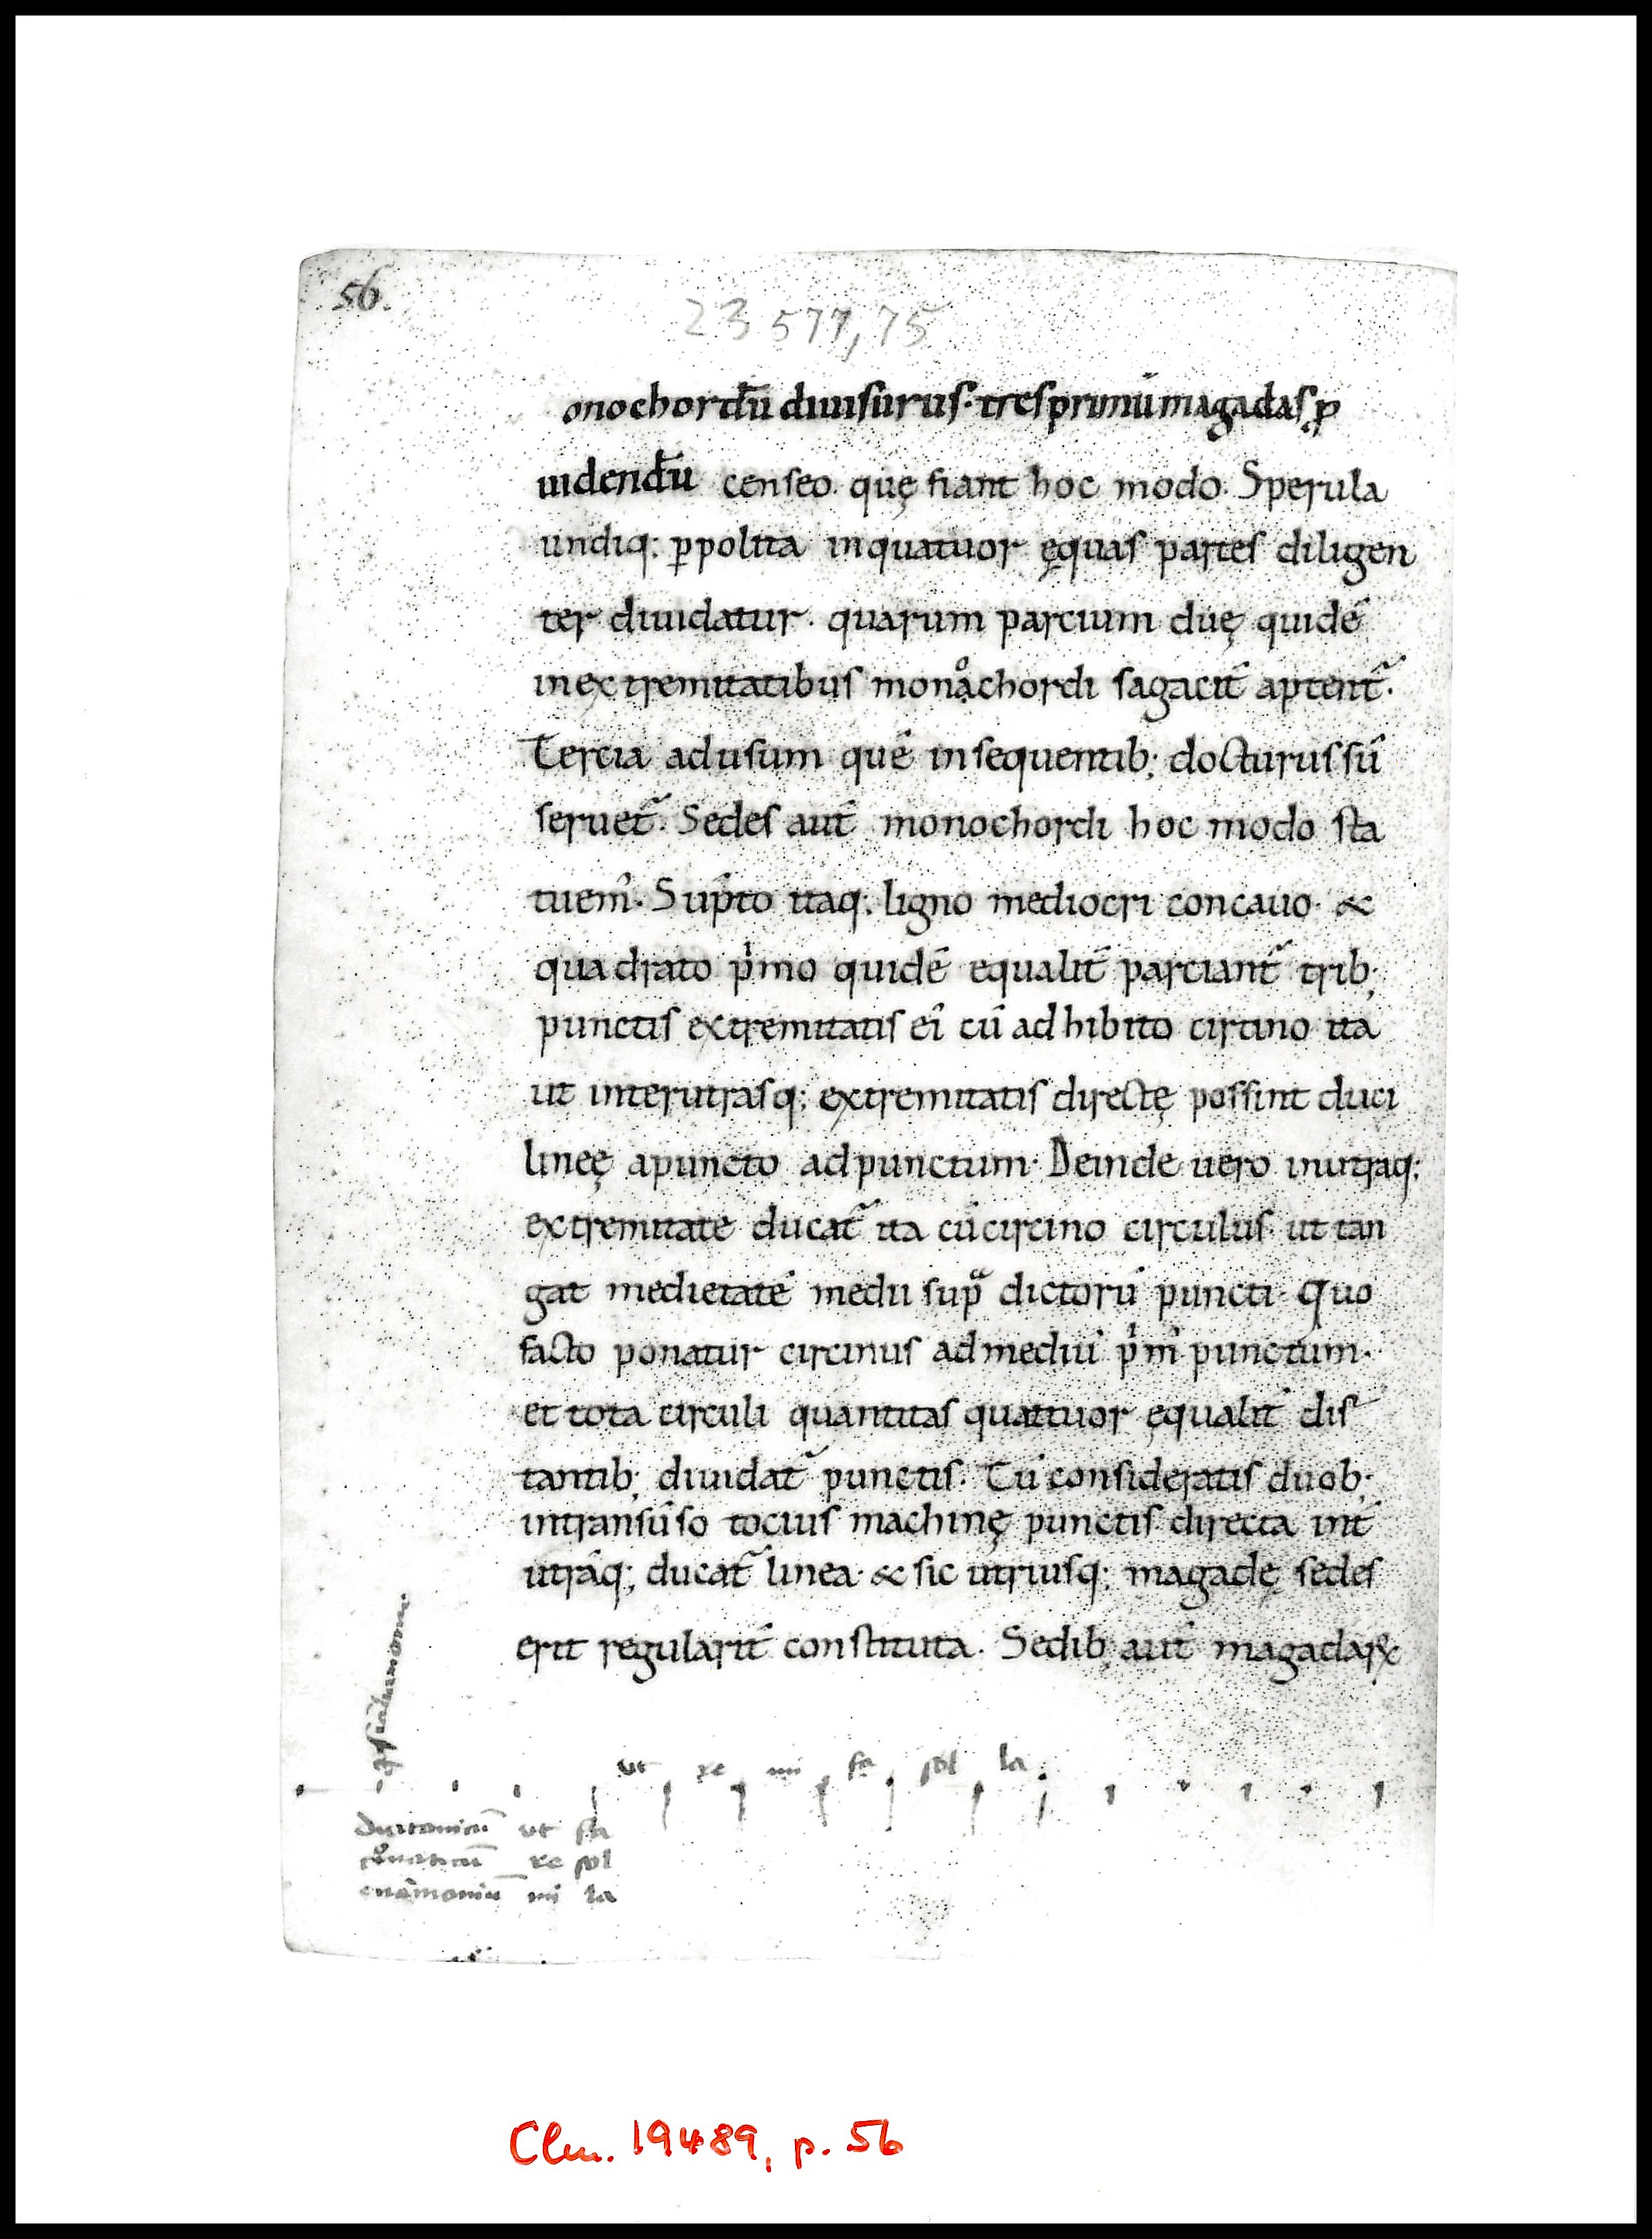 56.
23 577,75
onochordū diuisurus. tres primū magadas ꝓ
uidendū censeo. quę fiant hoc modo. Sperula
undiq; ꝑpolita inquatuor ęquas partes diligen
ter diuidatur. quarum parcium duę quidē
inextremitatibus monạͦchordi sagacit̄ aptent᷑.
Tercia adusum quē insequentib; docturus sū
seruet᷑. Sedes aut̄ monochordi hoc modo sta
tuem᷒. Sūpto itaq; ligno mediocri concauo. &
quadrato pͥmo quidē equalit̄ parciant᷑ trib;
punctis extremitatis ei᷒ cū adhibito circino ita
ut interutrasq; extremitatis directę possint duci
lineę apuncto adpunctum. Deinde uero inutraq;
extremitate ducat᷑ ita cūcircino circulus. ut tan
gat medietatē medii supᷓ dictorū puncti. Quo
facto ponatur circinus admediū pͥm᷒ punctum.
et tota circuli quantitas quattuor ęqualit̄ dis
tantib; diuidat᷑ punctis. Tū consideratis duob;
intransūso tocius machinę punctis directa int̄
utrāq; ducat᷑ linea. & sic utriusq; magadę sedes
erit regularit̄ constituta. Sedib; aut̄ magadaꝝ
ut re mi fa sol la
ut fa
re sol
mi la
Clm. 19489, p. 56